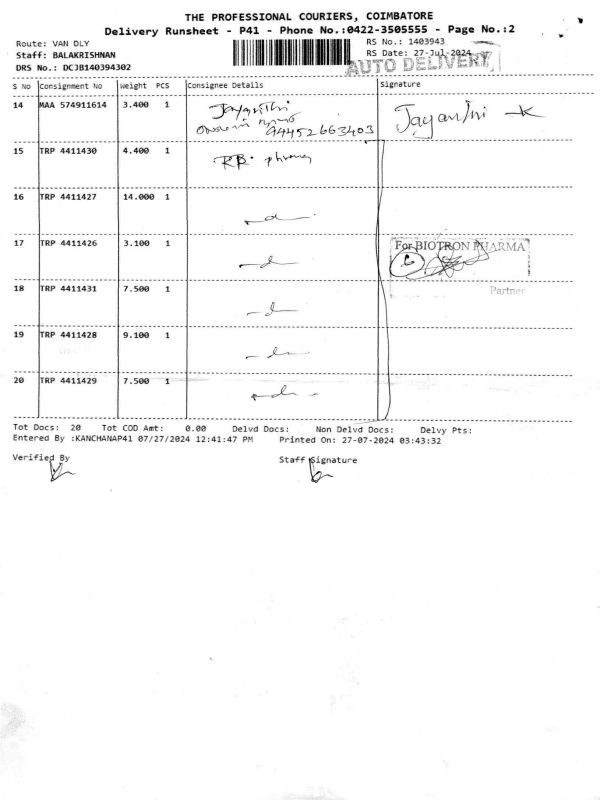 THE PROFESSIONAL COURIERS, COIMBATORE
Delivery Runsheet - P41 - Phone No.:0422-3505555 - Page No.:2
Route: VAN DLY
RS No.: 1403943
Staff: BALAKRISHNAN
RS Date: 27-Jul-2024
DRS No.: DCJB140394302
AUTO DELIVERY
S No Consignment No Weight PCS Consignee Details Signature
14 MAA 574911614 3.400 1 Jayanthi Jayanthi K
94452663403
15 TRP 4411430 4.400 1 RB.
16 TRP 4411427 14.000 1
17 TRP 4411426 3.100 1
For BIOTRON PHARMA
6
Partner
18 TRP 4411431 7.500 1
19 TRP 4411428 9.100 1
20 TRP 4411429 7.500 1
Tot Docs: 20 Tot COD Amt: 0.00 Delvd Docs: Non Delvd Docs: Delvy Pts:
Entered By :KANCHANAP41 07/27/2024 12:41:47 PM Printed On: 27-07-2024 03:43:32
Verified By Staff Signature